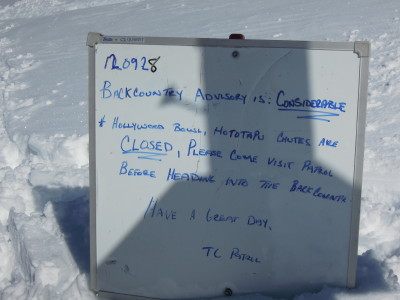 0928
BACKCOUNTRY ADVISORY IS: CONSIDERABLE
* HOLLYWOOD BOWL, MOTOTAPU CHUTES ARE
CLOSED, PLEASE COME VISIT PATROL
BEFORE HEADING INTO THE BACKCOUNTRY.
HAVE A GREAT DAY,
TC PATROL